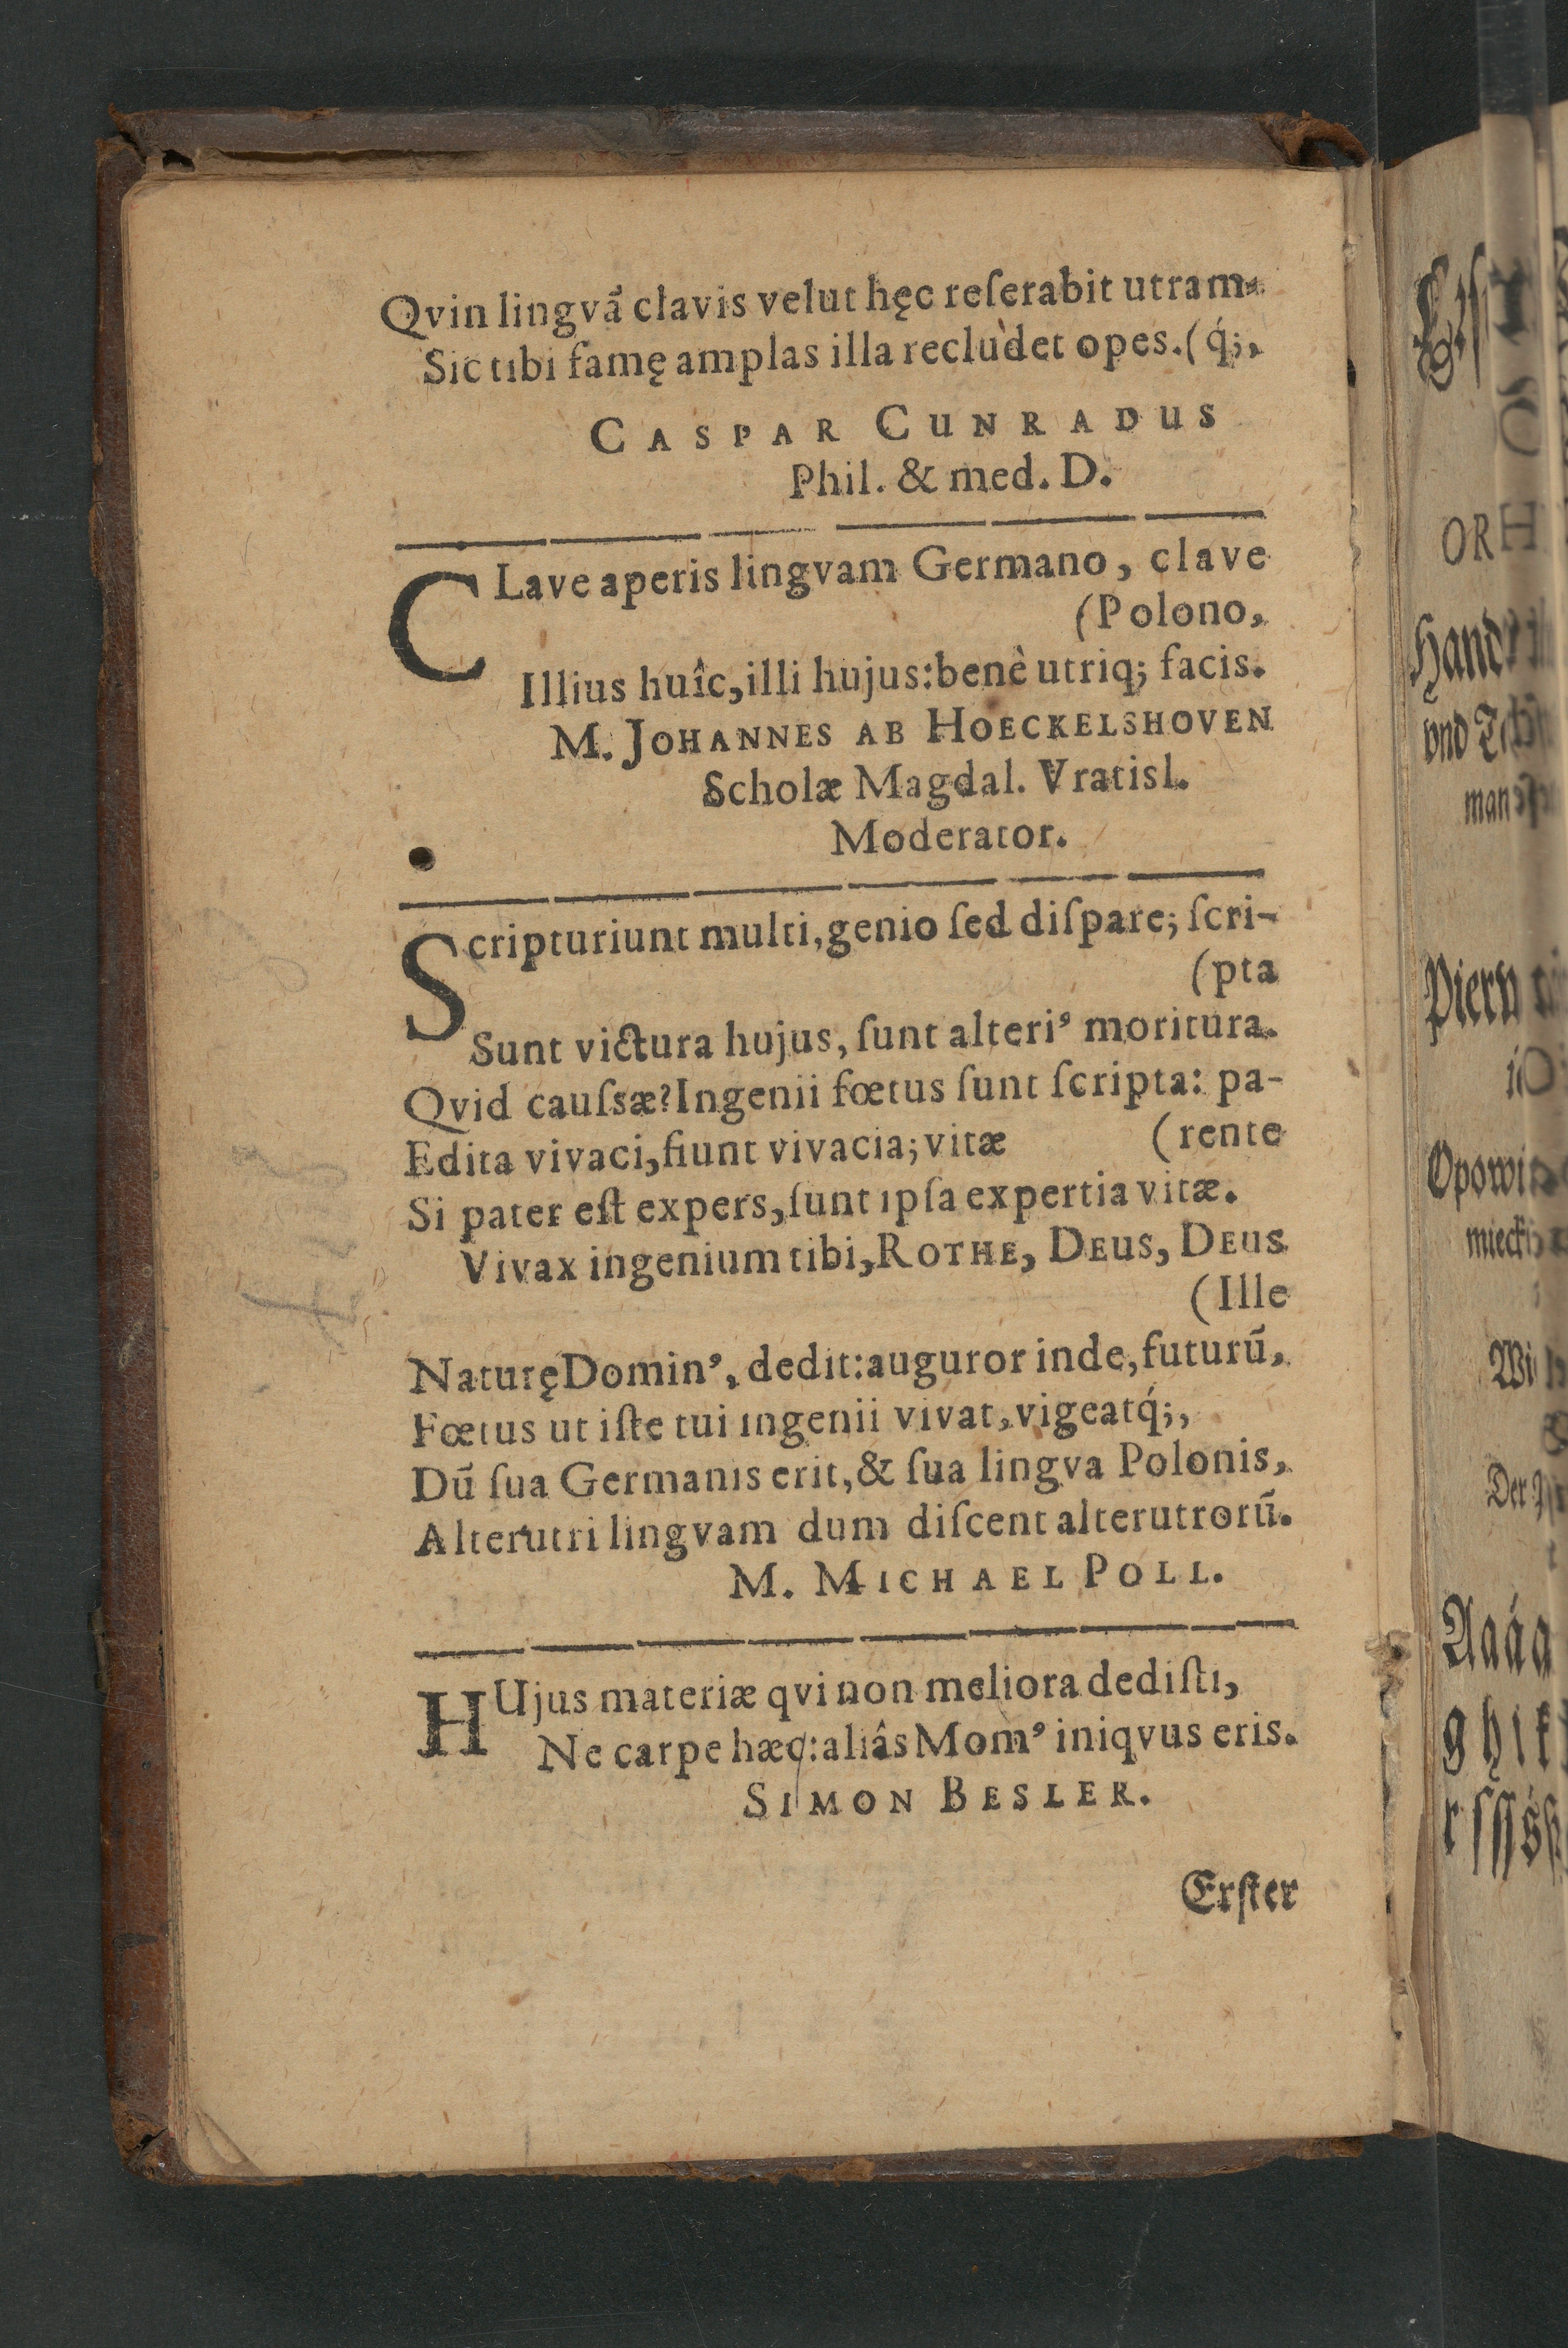 Qvin lingvã clavis velut hęc reſerabit utram-
Sic tibi famę amplas illa recludet opes. (q́;,
CASPAR CUNRADUS
Phil. & med. D.
CLave aperis lingvam Germano, clave
(Polono,
Illius huîc, illi hujus: benè utriq; facis.
M. JOHANNES AB HOECKELSHOVEN
Scholæ Magdal. Vratisl.
Moderator.
Scripturiunt multi, genio ſed diſpare; ſcri-
(pta
Sunt victura hujus, ſunt alteri⁹ moritura.
Qvid cauſsæ? Ingenii fœtus ſunt ſcripta: pa-
Edita vivaci, fiunt vivacia; vitæ (rente
Si pater eſt expers, ſunt ipſa expertia vitæ.
Vivax ingenium tibi, ROTHE, DEUS, DEUS
(Ille
Naturę Domin⁹, dedit: auguror inde, futurũ,
Fœtus ut iſte tui ingenii vivat, vigeatq́;,
Dũ ſua Germanis erit, & ſua lingva Polonis,
Alterutri lingvam dum diſcent alterutrorũ.
M. MICHAEL POLL.
HUjus materiæ qvi non meliora dediſti,
Ne carpe hæc: aliâs Mom⁹ iniqvus eris.
SIMON BESLER.
Erſter
OR
Hand
vnd
man
Opowi
mieck
Wi
Der
Aaáa
g h i k
r ſ ſſ ś